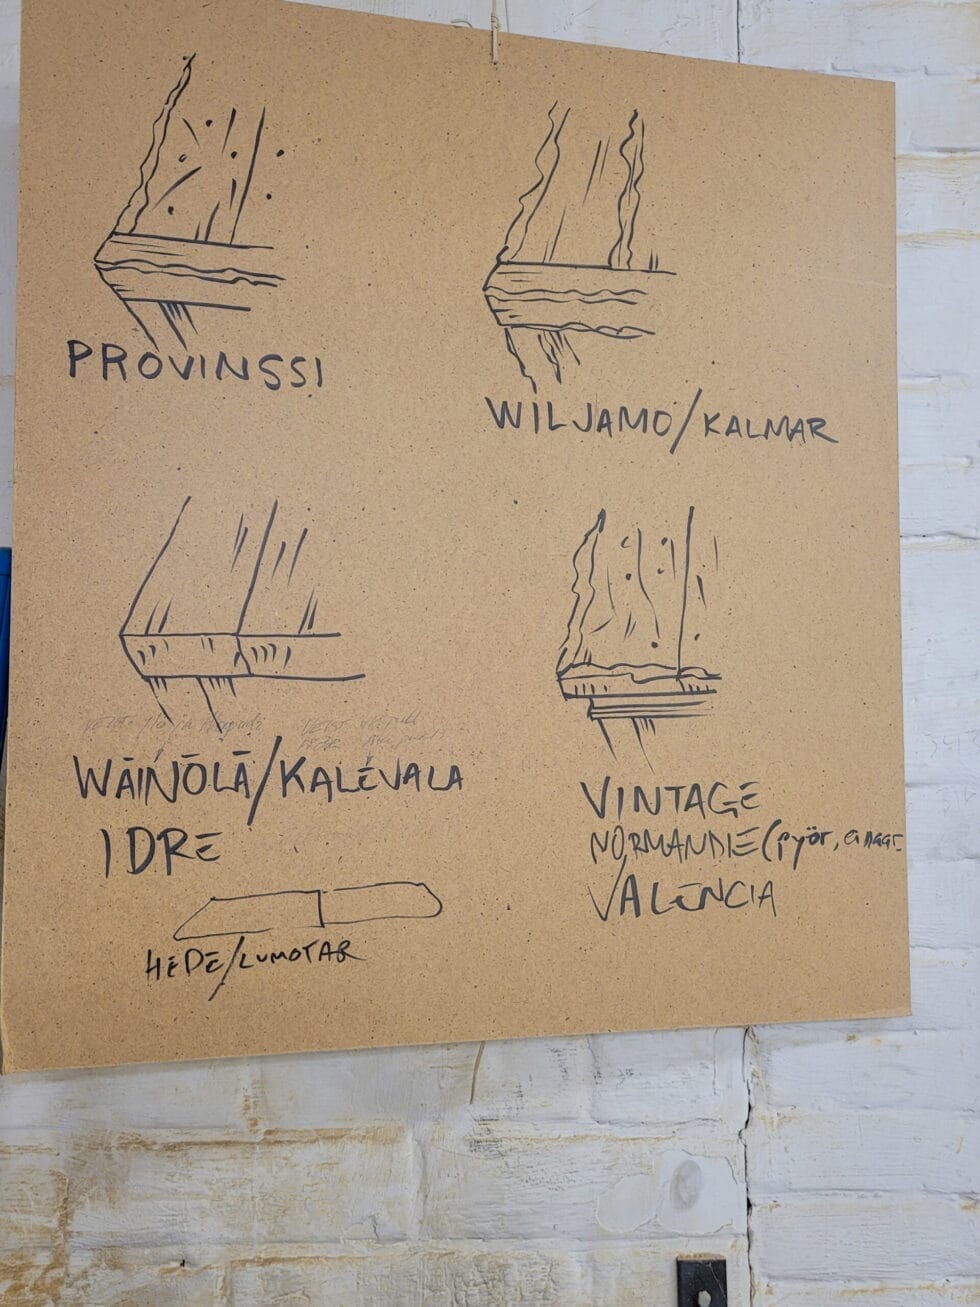 PROVINSSI
WILJAMO/KALMAR
WÄINÖLÄ/KALEVALA
IDRE
HEDE/LUMOTAR
VINTAGE
NORMANDIE (pyör,
VALENCIA